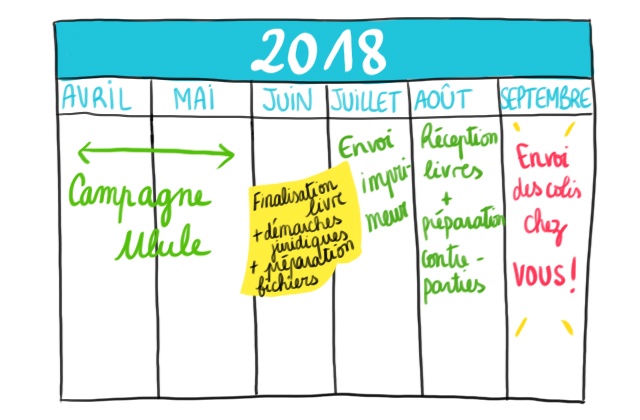 2018
AVRIL
MAI
JUIN
JUILLET
AOÛT
SEPTEMBRE
Campagne
Ulule
Finalisation
livre
+ démarches
juridiques
+ préparation
fichiers
Envoi
impri-
meur
Réception
livres
+
préparation
contre-
parties
Envoi
des colis
chez
VOUS!